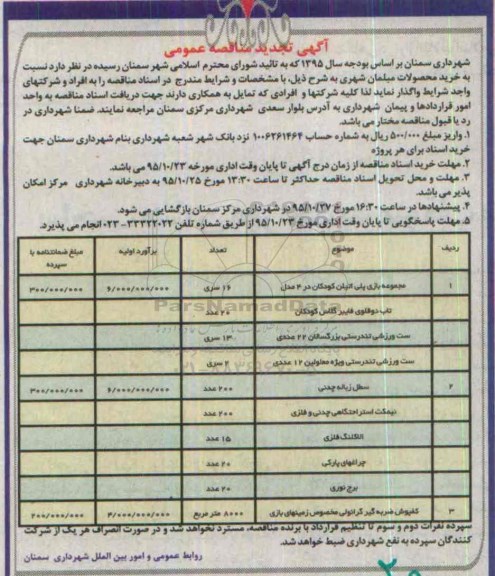 آگهی تجدید مناقصه عمومی
شهرداری سمنان بر اساس بودجه سال ۱۳۹۵ که به تائید شورای محترم اسلامی شهر سمنان رسیده در نظر دارد نسبت
به خرید محصولات مبلمان شهری به شرح ذیل، با مشخصات و شرایط مندرج در اسناد مناقصه را به افراد و شرکتهای
واجد شرایط واگذار نماید لذا کلیه شرکتها و افرادی که تمایل به همکاری دارند جهت دریافت اسناد مناقصه به واحد
امور قراردادها و پیمان شهرداری به آدرس بلوار سعدی شهرداری مرکزی سمنان مراجعه نمایند. ضمنا شهرداری در
رد یا قبول مناقصه مختار می باشد.
۱. واریز مبلغ ۵۰۰/۰۰۰ ریال به شماره حساب ۱۰۰۶۲۶۱۴۶۴ نزد بانک شهر شعبه شهرداری بنام شهرداری سمنان جهت
خرید اسناد برای هر پروژه
۲. مهلت خرید اسناد مناقصه از زمان درج آگهی تا پایان وقت اداری مورخه ۹۵/۱۰/۲۳ می باشد.
۳. مهلت و محل تحویل اسناد مناقصه حداکثر تا ساعت ۱۳:۳۰ مورخ ۹۵/۱۰/۲۵ به دبیرخانه شهرداری مرکز امکان
پذیر می باشد.
۴. پیشنهادها در ساعت ۱۶:۳۰ مورخ ۹۵/۱۰/۲۷ در شهرداری مرکز سمنان بازگشایی می شود.
۵. مهلت پاسخگویی تا پایان وقت اداری مورخ ۹۵/۱۰/۲۳ از طریق شماره تلفن ۳۳۳۲۲۰۲۲-۰۲۳ انجام می پذیرد.
ردیف موضوع تعداد برآورد اولیه مبلغ ضمانتنامه یا سپرده
۱ مجموعه بازی پلی اتیلن کودکان در ۴ مدل ۱۶ سری ۶/۰۰۰/۰۰۰/۰۰۰ ۳۰۰/۰۰۰/۰۰۰
تاب دوقلوی فایبر گلاس کودکان ۲۰ عدد
ست ورزشی تندرستی بزرگسالان ۲۲ عددی ۱۳ سری
ست ورزشی تندرستی ویژه معلولین ۱۲ عددی ۲ سری
۲ سطل زباله چدنی ۲۰۰ عدد ۶/۰۰۰/۰۰۰/۰۰۰ ۳۰۰/۰۰۰/۰۰۰
نیمکت استراحتگاهی چدنی و فلزی ۲۰۰ عدد
الاکلنگ فلزی ۱۵ عدد
چراغهای پارکی ۲۰ عدد
برج نوری ۲۰ عدد
۳ کفپوش ضربه گیر گرانولی مخصوص زمینهای بازی ۸۰۰۰ متر مربع ۴/۰۰۰/۰۰۰/۰۰۰ ۲۰۰/۰۰۰/۰۰۰
سپرده نفرات دوم و سوم تا تنظیم قرارداد با برنده مناقصه، مسترد نخواهد شد و در صورت انصراف هر یک از شرکت
کنندگان سپرده به نفع شهرداری ضبط خواهد شد.
روابط عمومی و امور بین الملل شهرداری سمنان
ParsNamadData